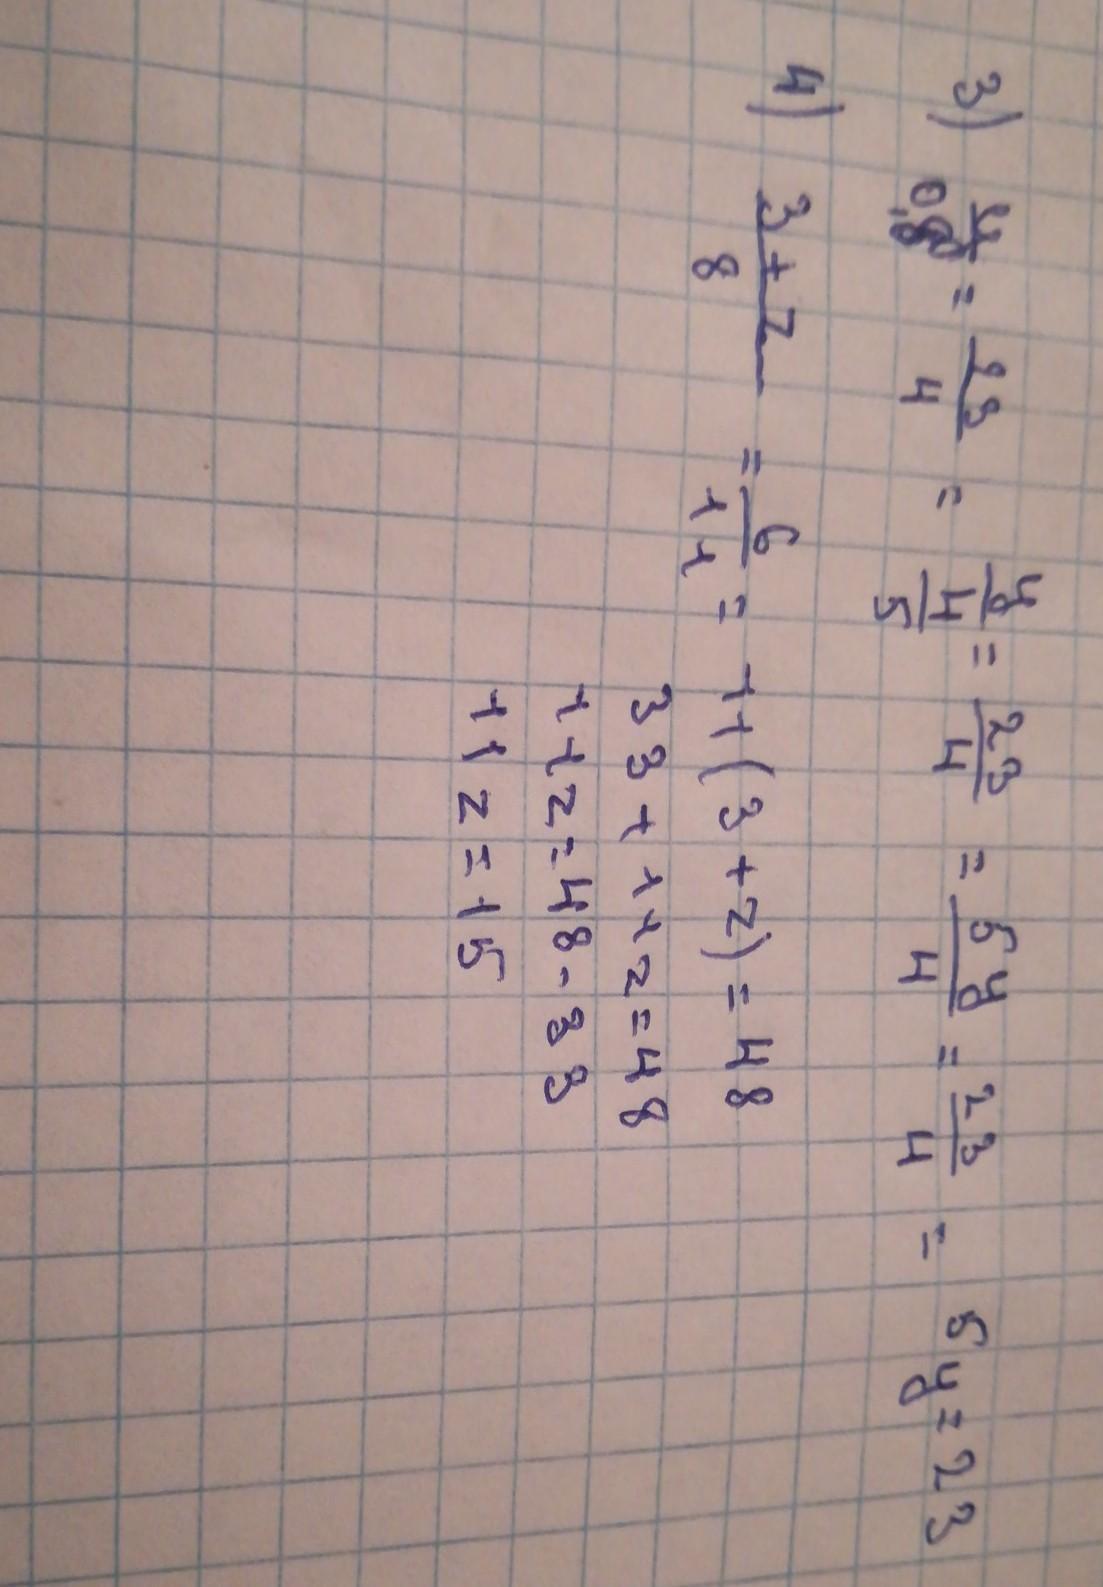 3) y/0,8 = 23/4 = y/(4/5) = 23/4 = 5y/4 = 23/4 = 5y = 23
4) (3+z)/8 = 6/11 = 11(3+z) = 48
33 + 11z = 48
11z = 48 - 33
11z = 15